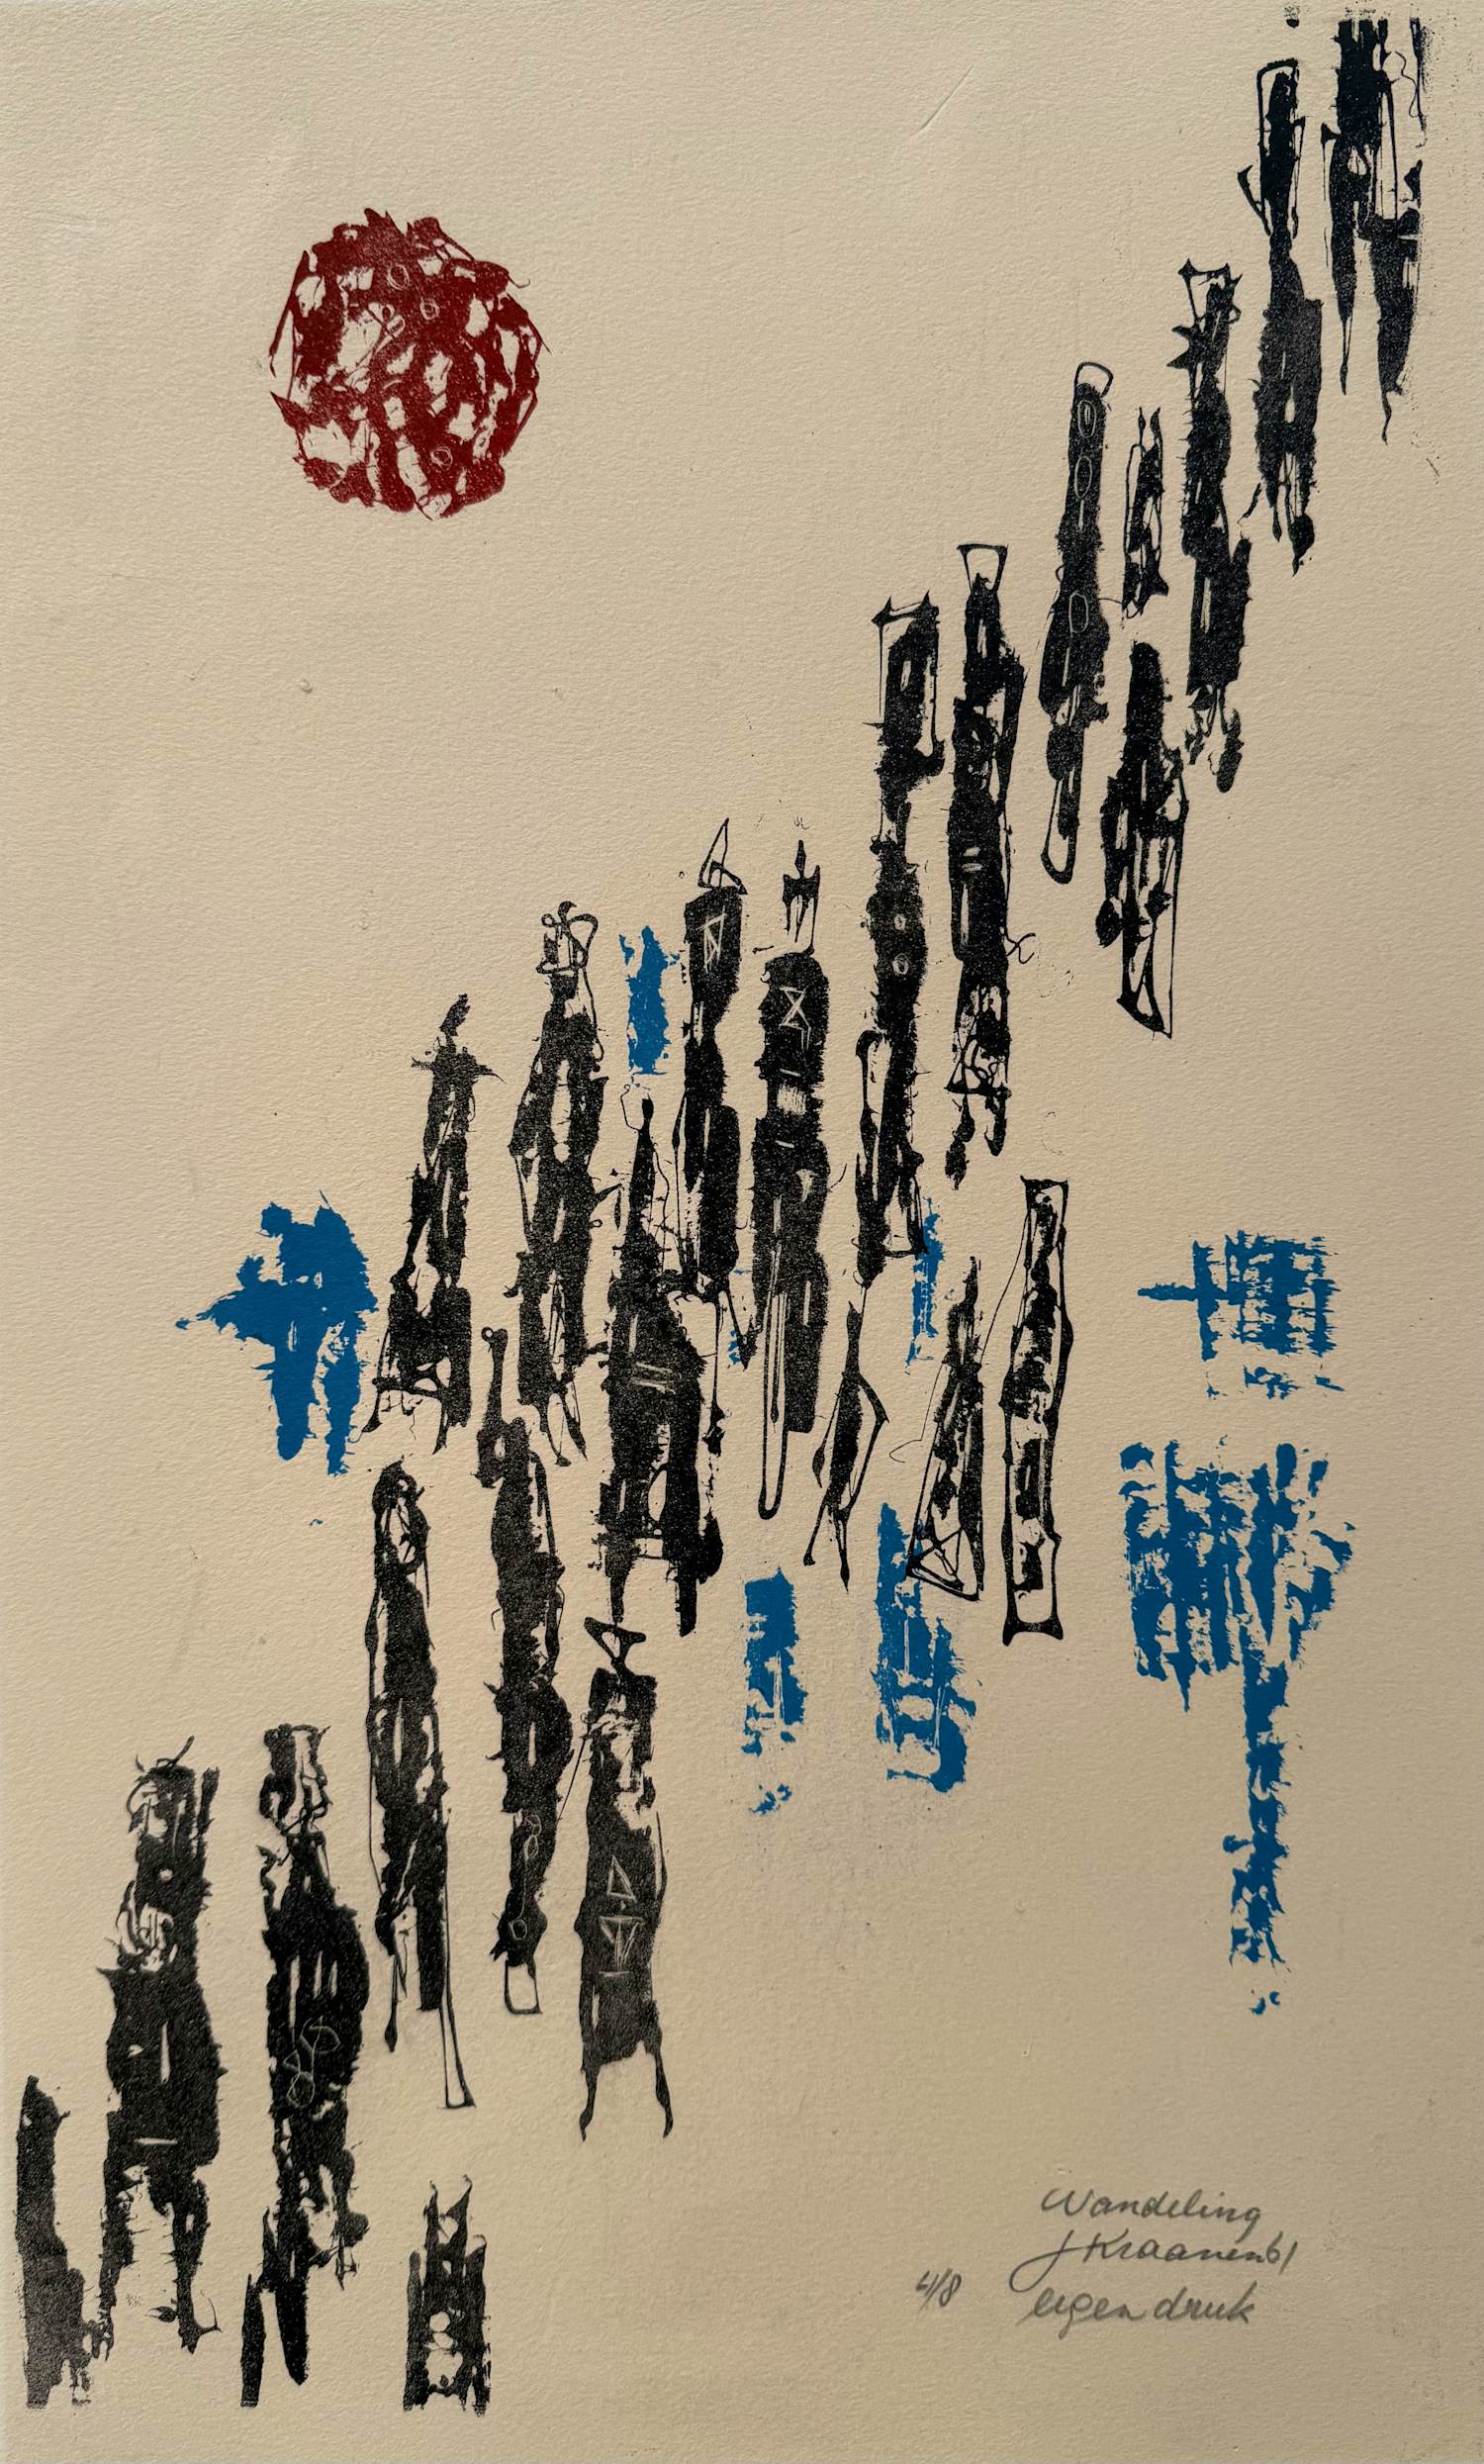 Wandeling
J Kraanen 61
4/8 eigen druk